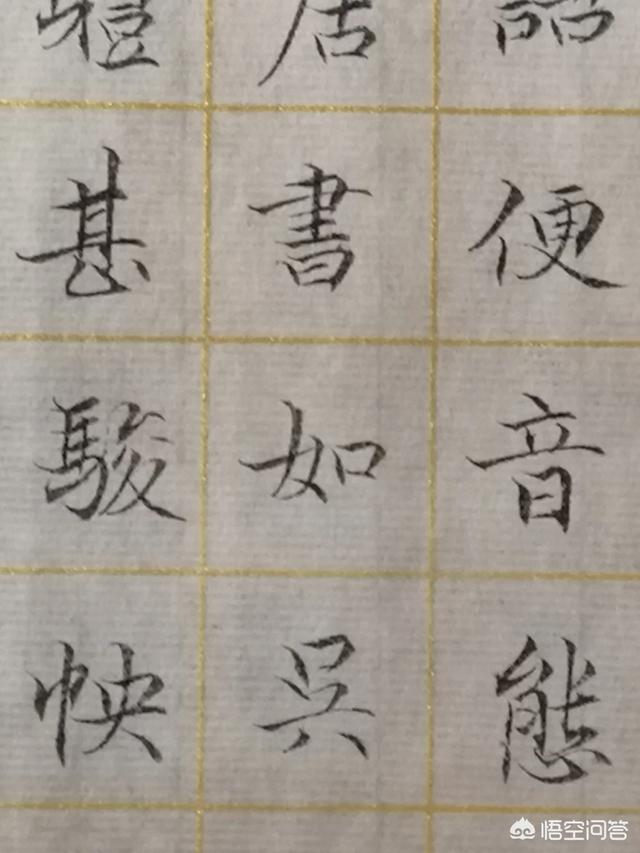 便音態
居書如吳
體甚駿快
悟空问答